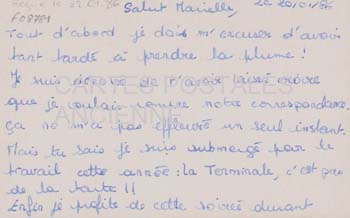 Reçue le 22.01.86
Salut Marielle, Le 20/01/86
F08781
Tout d'abord je dois m'excuser d'avoir
tant tardé à prendre la plume !
Je suis désolée de t'avoir laissé croire
que je voulais rompre notre correspondance.
ça ne m'a pas effleuré un seul instant.
Mais tu sais je suis submergé par le
travail cette année : la Terminale, c'est pas
de la tarte !!
Enfin je profite de cette soirée devant
CARTES POSTALES
ANCIENNES